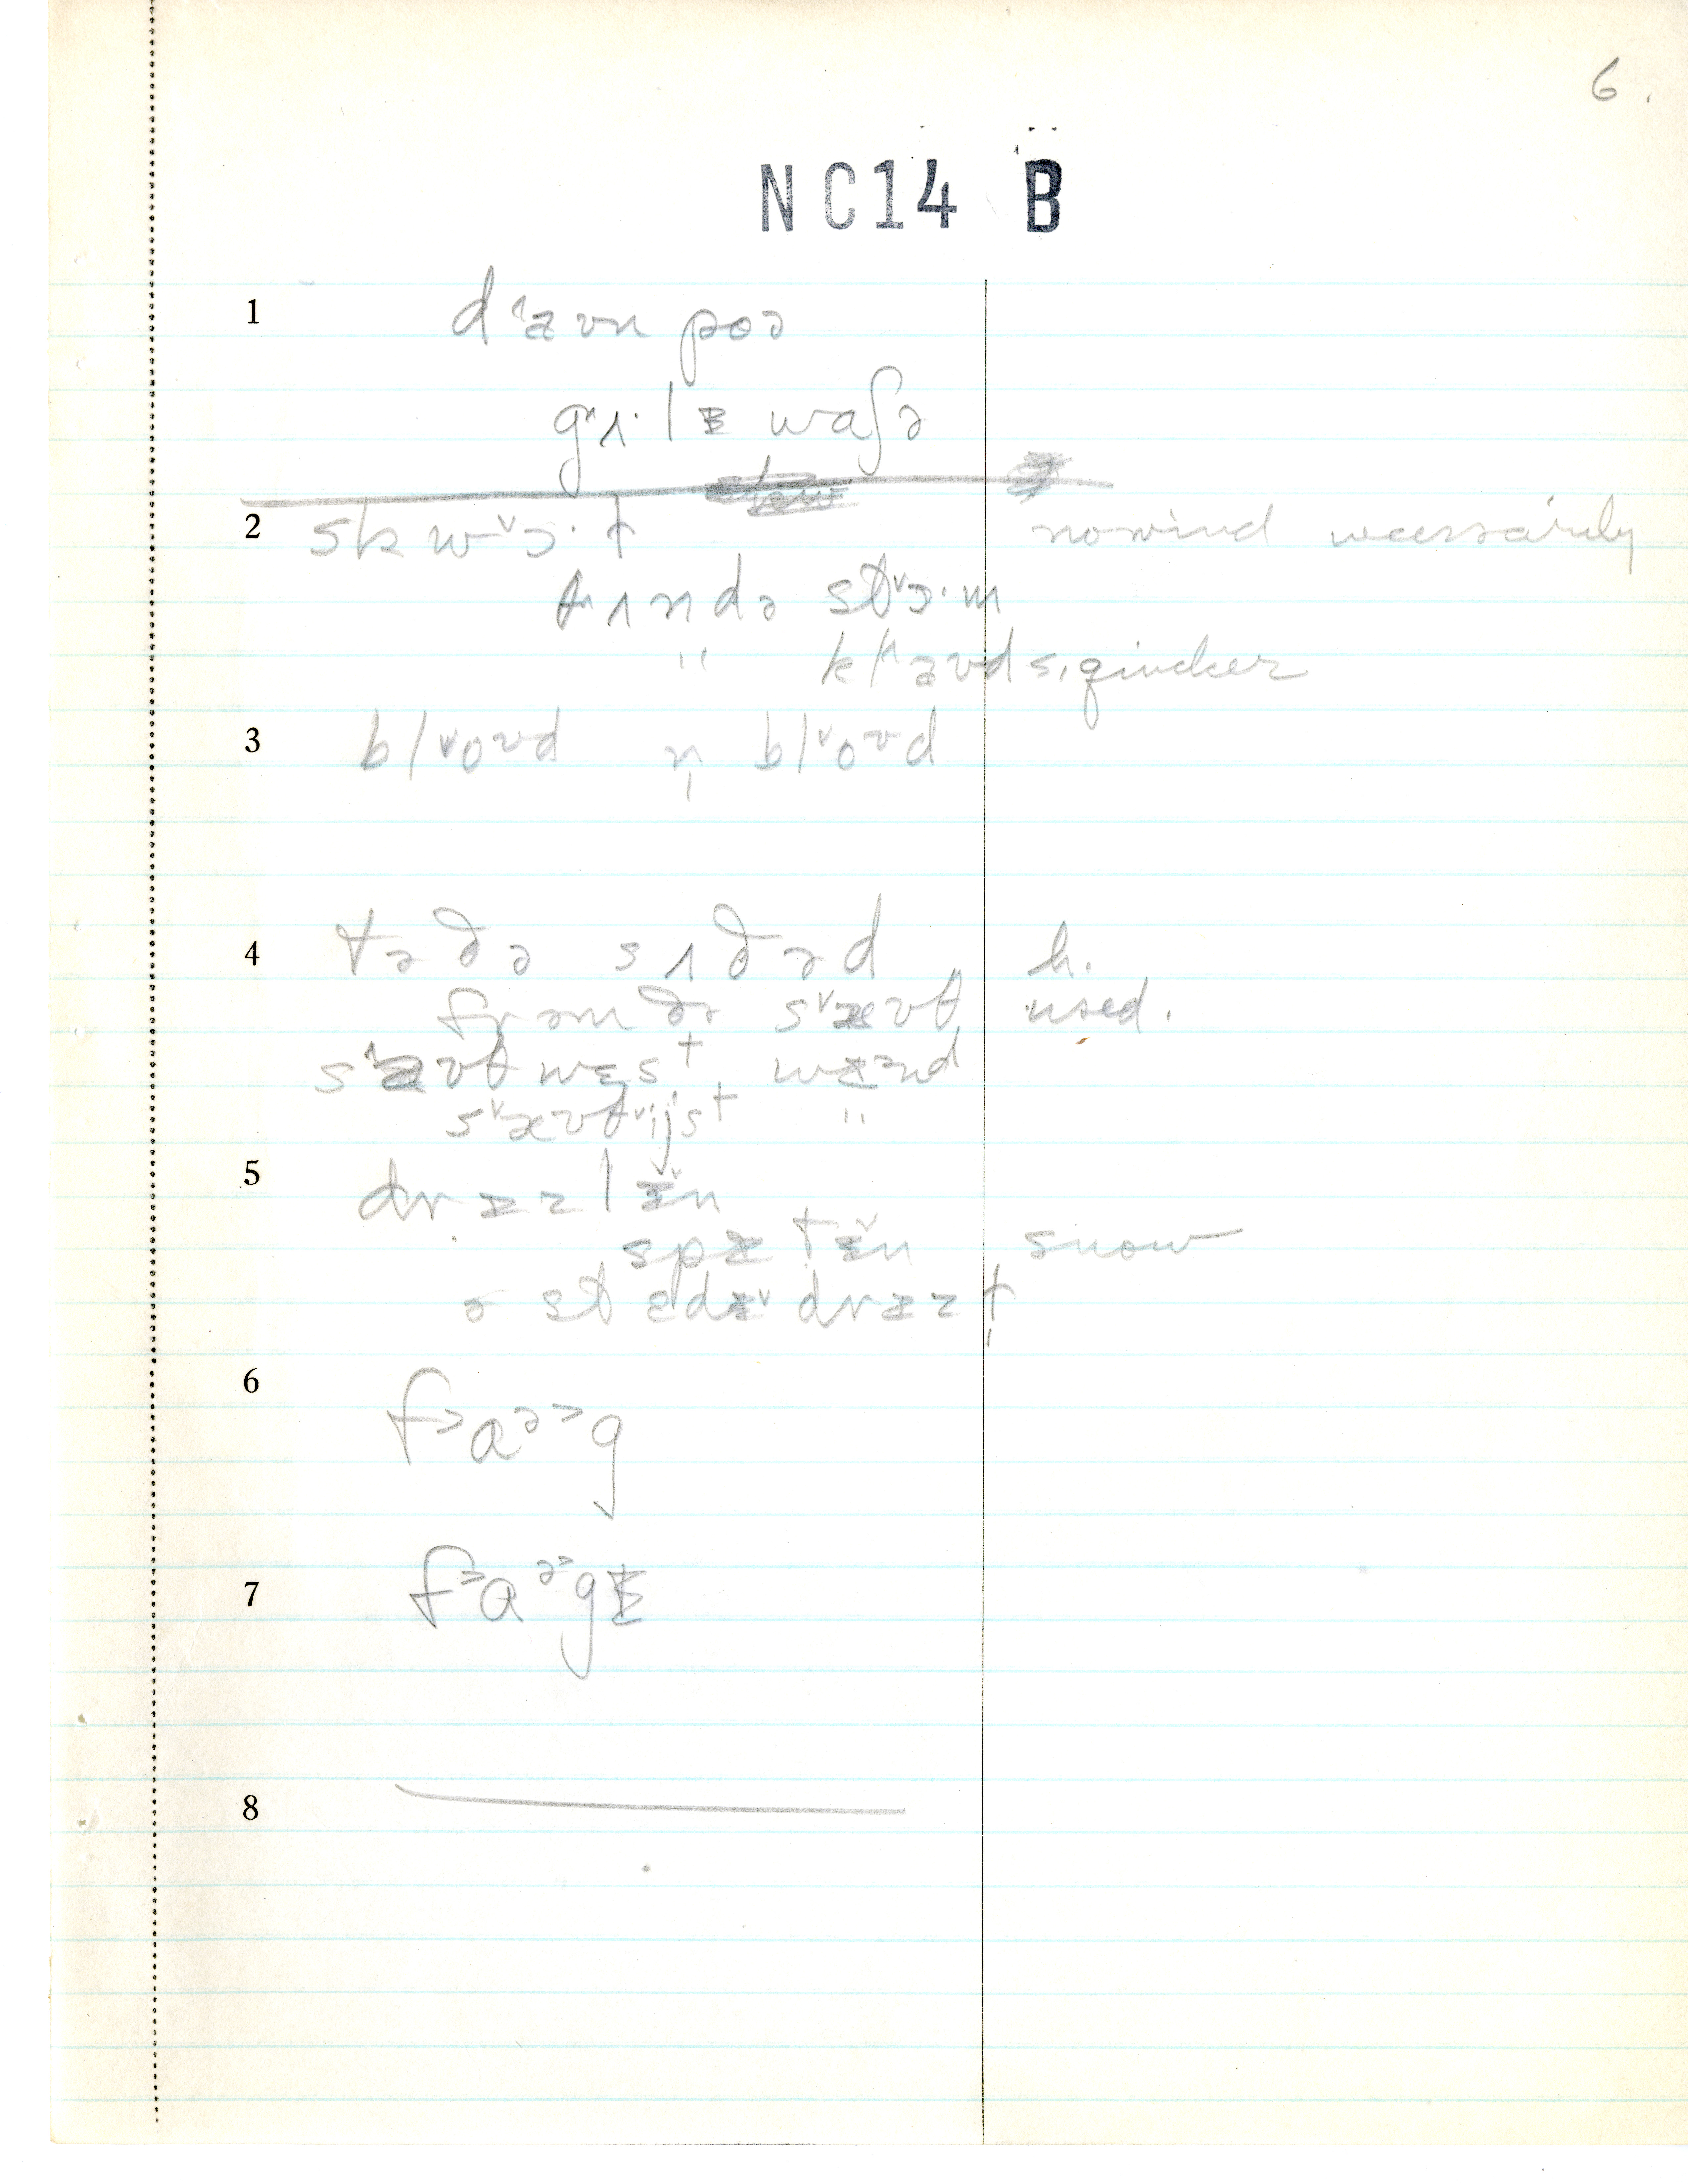 6.
NC14 B
1 d˄aʊn poə
gɜʌ·lɪ waʃə
2 skw˅ɔ·l̩ no wind necessarily
θʌndə st˅ɔ·m
" kl˄aʊds, quicker
3 bl˅oʊd n̩ bl˅oʊd
4 tə ðə sʌðəd h.
frəm ðə s˅æʊθ used.
s˄aʊθwɛst wɪənd
s˅æʊθ˅ijst "
5 drɪzlɪ̆n
spɪtɪ̆n snow
ə stɛdɪ˅ drɪzl̩
6 f˃ɑᵊ˃g
7 f˃ɑᵊ˃gɪ
8